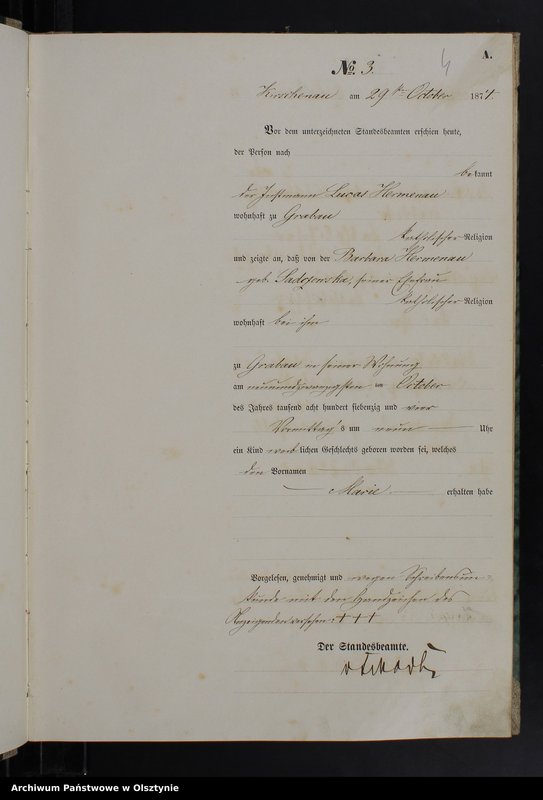 A.
4
No. 3.
Kirschenau am 29ten October 1874.
Vor dem unterzeichneten Standesbeamten erschien heute,
der Person nach
bekannt
der Instmann Lucas Hermenau
wohnhaft zu Grabau
katholischer Religion
und zeigte an, daß von der Barbara Hermenau
geb. Sadowska, seiner Ehefrau
katholischer Religion
wohnhaft bei ihm
zu Grabau in seiner Wohnung
am neunundzwanzigsten ten October
des Jahres tausend acht hundert siebenzig und vier
Vormittag's um neun Uhr
ein Kind weiblichen Geschlechts geboren worden sei, welches
den Vornamen
Marie erhalten habe
Vorgelesen, genehmigt und wegen Schreibensun-
kunde mit den Handzeichen des
Anzeigenden versehen: +++
Der Standesbeamte.
Archiwum Państwowe w Olsztynie